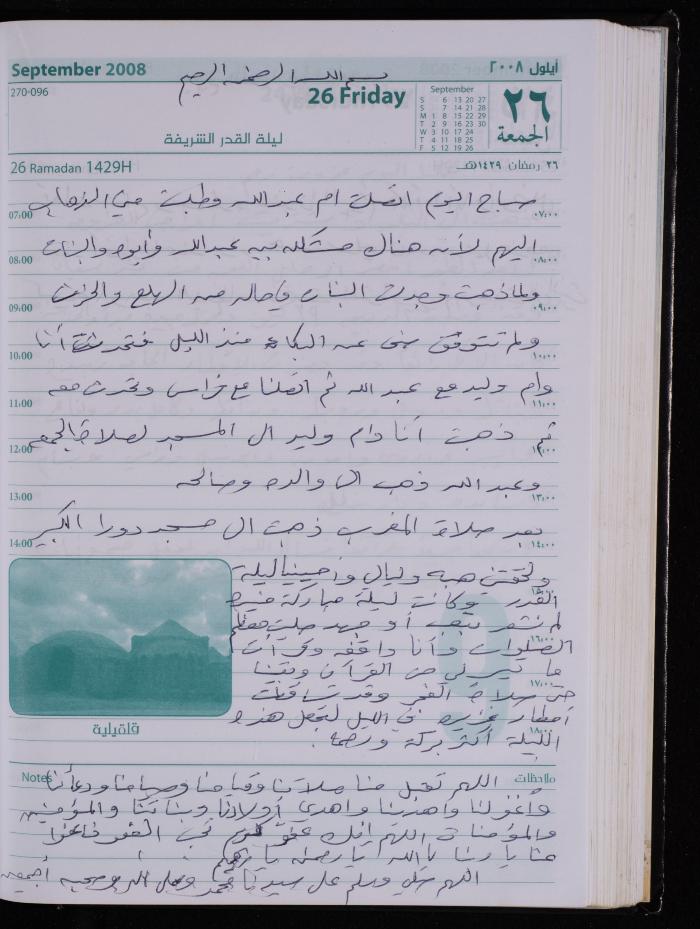 September 2008
بسم الله الرحمن الرحيم
أيلول ٢٠٠٨
270-096
26 Friday
٢٦
الجمعة
September
S 6 13 20 27
S 7 14 21 28
M 1 8 15 22 29
T 2 9 16 23 30
W 3 10 17 24
T 4 11 18 25
F 5 12 19 26
ليلة القدر الشريفة
26 Ramadan 1429H
٢٦ رمضان ١٤٢٩هـ
صباح اليوم اتصلت ام عبدالله وطلبت مني الذهاب
07:00 ٠٧:٠٠
اليهم لأنه هناك مشكله بين عبدالله وأبوه والبنات
08:00 ٠٨:٠٠
ولما ذهبت وجدت البنات في حاله من الهلع والحزن
09:00 ٠٩:٠٠
ولم تتوقف منى عن البكاء منذ الليل فتحدثت أنا
10:00 ١٠:٠٠
وام وليد مع عبد الله ثم اتصلنا مع فراس وتحدث معه
11:00 ١١:٠٠
ثم ذهبت أنا وام وليد الى المسجد لصلاة الجمعه
12:00 ١٢:٠٠
وعبد الله ذهب الى والده وصالحه
13:00 ١٣:٠٠
بعد صلاة المغرب ذهبت ال مسجد دورا الكبير
14:00 ١٤:٠٠
ولحقتني هبه وليال وأحيينا ليلة
القدر وكانت ليلة مباركة
لم نشعر بتعب أو جهد صليت معظم
١٦:٠٠
الصلوات وأنا واقفه وقرأت
ما تيسر لي من القرآن وبقينا
١٧:٠٠
حتى صلاة الفجر وقد تساقطت
أمطار غزيره في الليل لتجعل هذه
١٨:٠٠
الليلة أكثر بركة ورحمه.
9
قلقيلية
Notes
ملاحظات
اللهم تقبل منا صلاتنا وقيامنا وصيامنا ودعائنا
وأغفر لنا واهدينا واهدي أولادنا وبناتنا والمؤمنين
والمؤمنات اللهم إنك عفو تحب العفو فاعفوا
عنا يا ربنا يا الله يا رحمن يا رحيم
اللهم صلي وسلم على سيدنا محمد وعلى اله وصحبه أجمعين